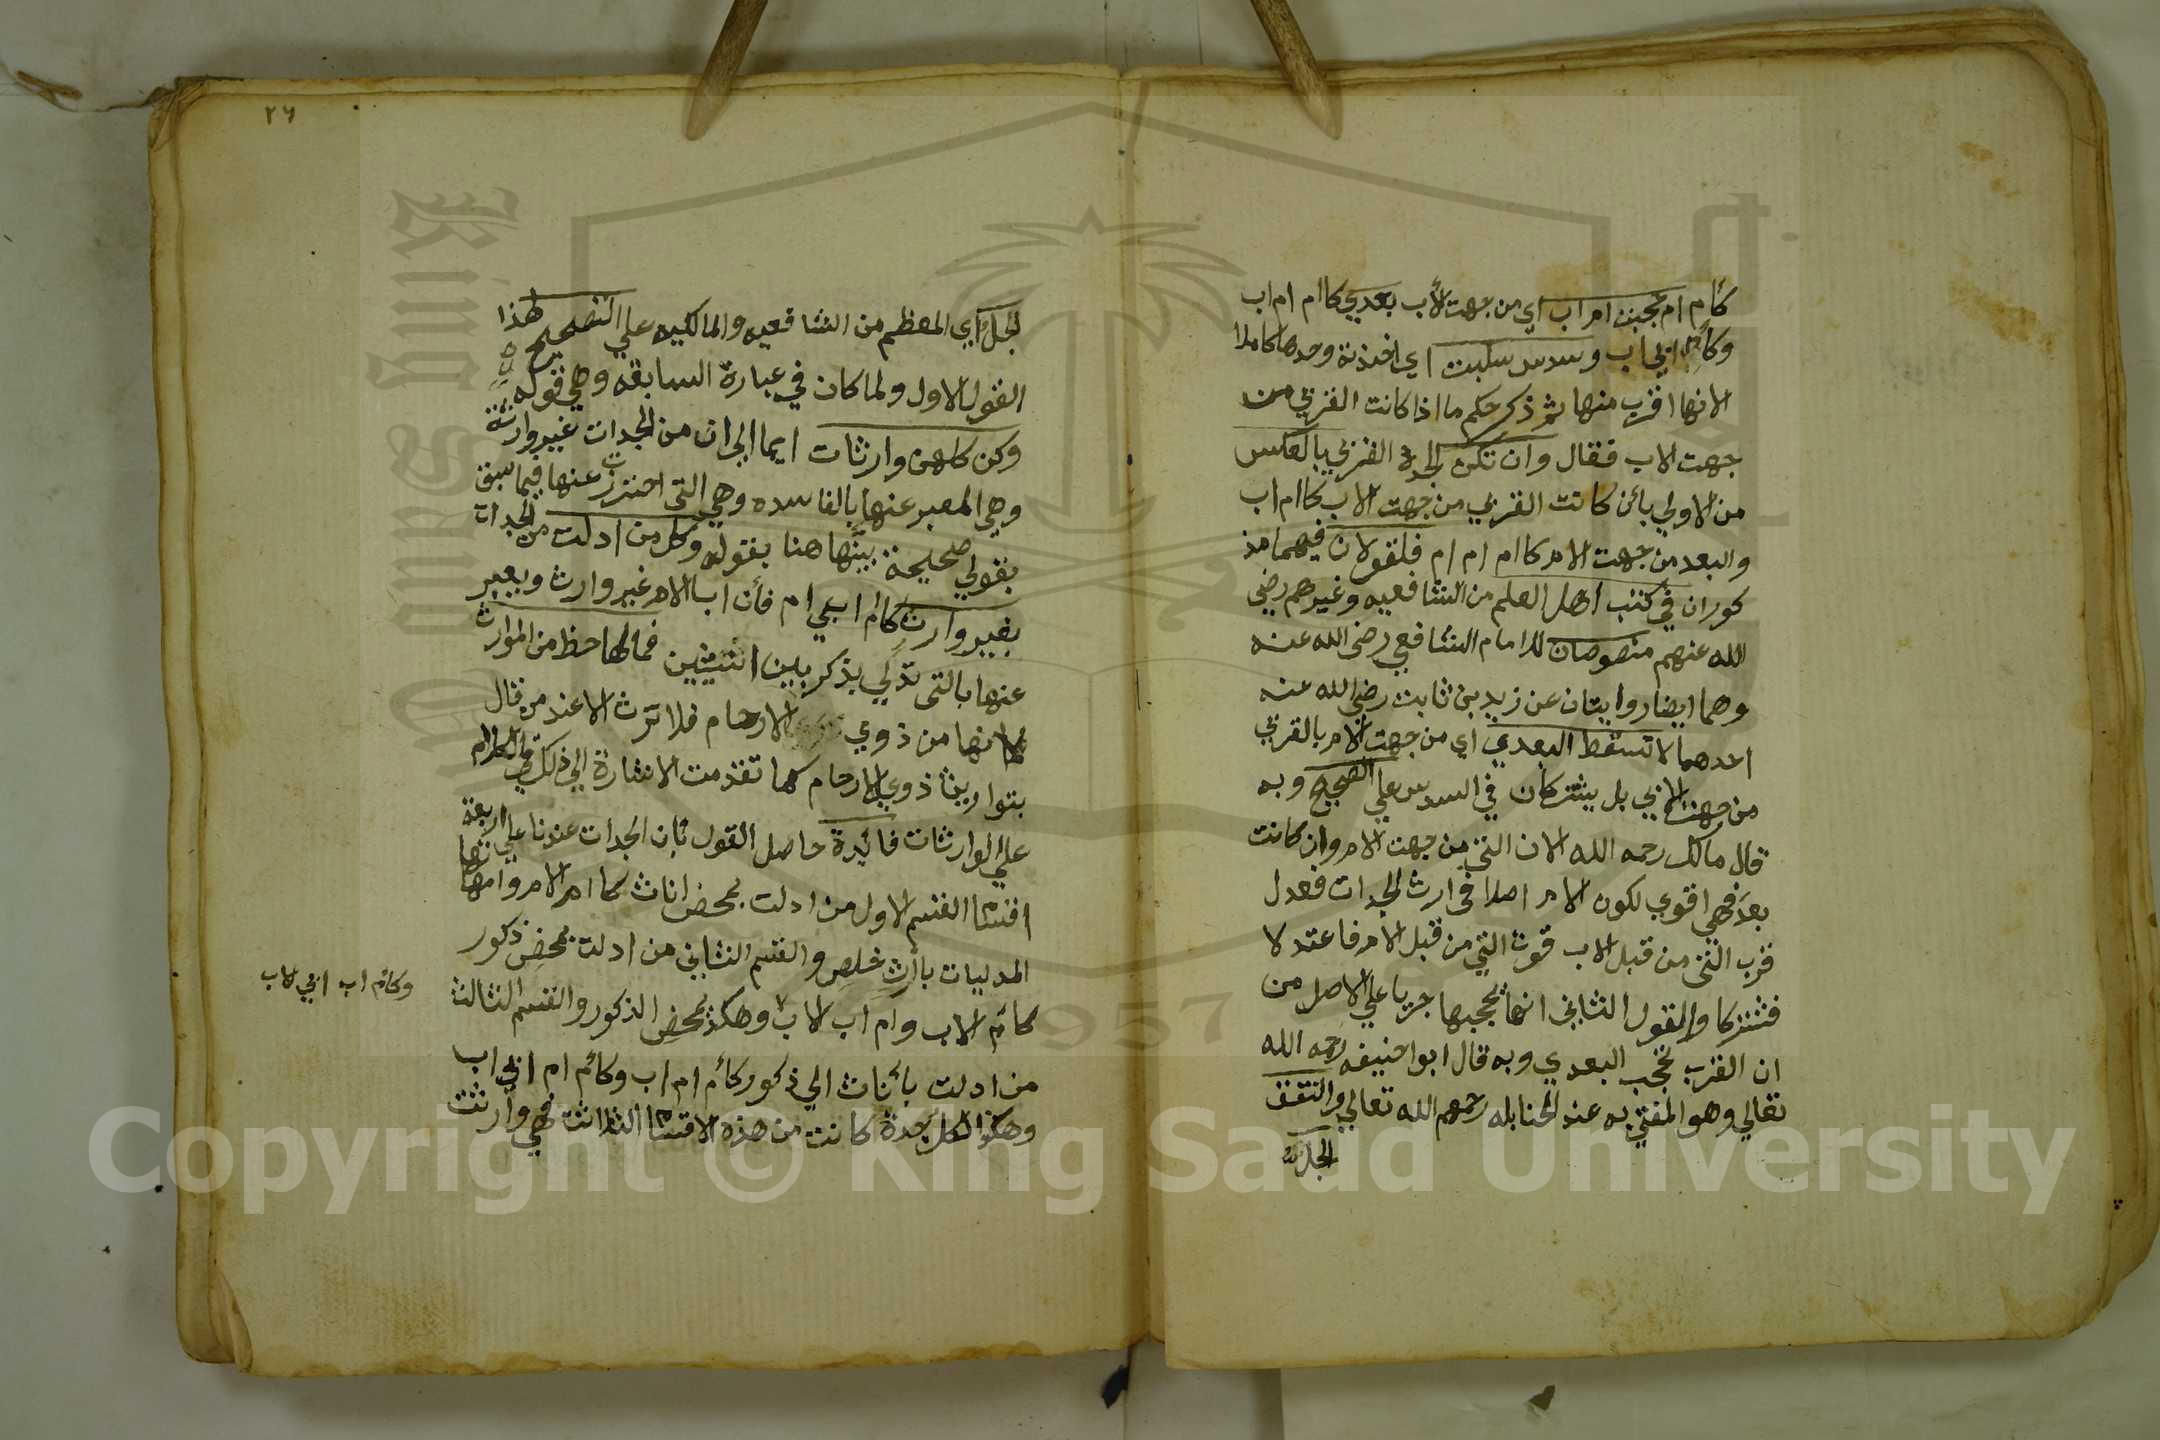 كأم ام تحجبن ام اب اي من جهت الأب بعدي كاام ام اب
وكأم ابي اب وسدس سلبت اي اخذته وحدها كاملا
لانها اقرب منها ثم ذكر حكم ما اذا كانت القربي من
جهت الاب فقال وان تكن الجدة القربي بالعكس
من الاولي بائن كانت القربي من جهت الاب كاام اب
والبعد من جهت الام كاام ام ام فلقولان فيهما مذ
كوران في كتب اهل العلم من الشافعيه وغيرهم رضي
الله عنهم منصوصان للامام الشافعي رضي الله عنه
وهما ايضا روايتان عن زيد بن ثابت رضي الله عنه
احدهما لا تسقط البعدي اي من جهت الام بالقربي
من جهت الابي بل يشتركان في السدس علي الصحيح وبه
قال مالك رحمه الله لان التي من جهت الام وان كانت
بعد فهي اقوي لكون الام اصلا في ارث الجدات فعدل
قرب التي من قبل الاب قوت التي من قبل الام فاعتدلا
فشتركا والقول الثاني انها تحجبها جريا علي الاصل من
ان القرب تحجب البعدي وبه قال ابوا حنيفه رحمه الله
تعالي وهو المفتي به عند الحنابله رحمهم الله تعالي والتفف
الجل
٢٦
الجل اي المعظم من الشافعيه والمالكيه علي التصحيح لهذا
القول الاول ولما كان في عبارة السابقه وهي قوله
وكن كلهن وارثات ايما الي ان من الجدات غير وارثة
وهي المعبر عنها بالفاسده وهي التي احترزت عنها فيما سبق
بقولي صحيحة بينها هنا بقوله وكل من ادلت من الجدات
بغير وارث كام ابي ام فأن اب الام غير وارث ويعبر
عنها بالتي تدلي بذكر بين انثيين فما لها حظ من الموارث
لانها من ذوي الارحام فلا ترث الا عند من قال
بتواريث ذوي الارحام كما تقدمت الاشارة الي ذلك في الكلام
علي الوارثات فائدة حاصل القول بان الجدات عندنا علي اربعة
اقسام القسم الاول من ادلت بمحض اناث كاام الام وامهاتها
المدليات بأناث خلص والقسم الثاني من ادلت بمحض ذكور
كأم الاب وام اب الاب وهكذ بمحض الذكور والقسم الثالث
وكأم اب ابي لاب
من ادلت بأناث الي ذكور كأم ام اب وكأم ام ابي اب
وهكذا فكل جدة كانت من هذه الاقسام الثلاثة فهي وارثت